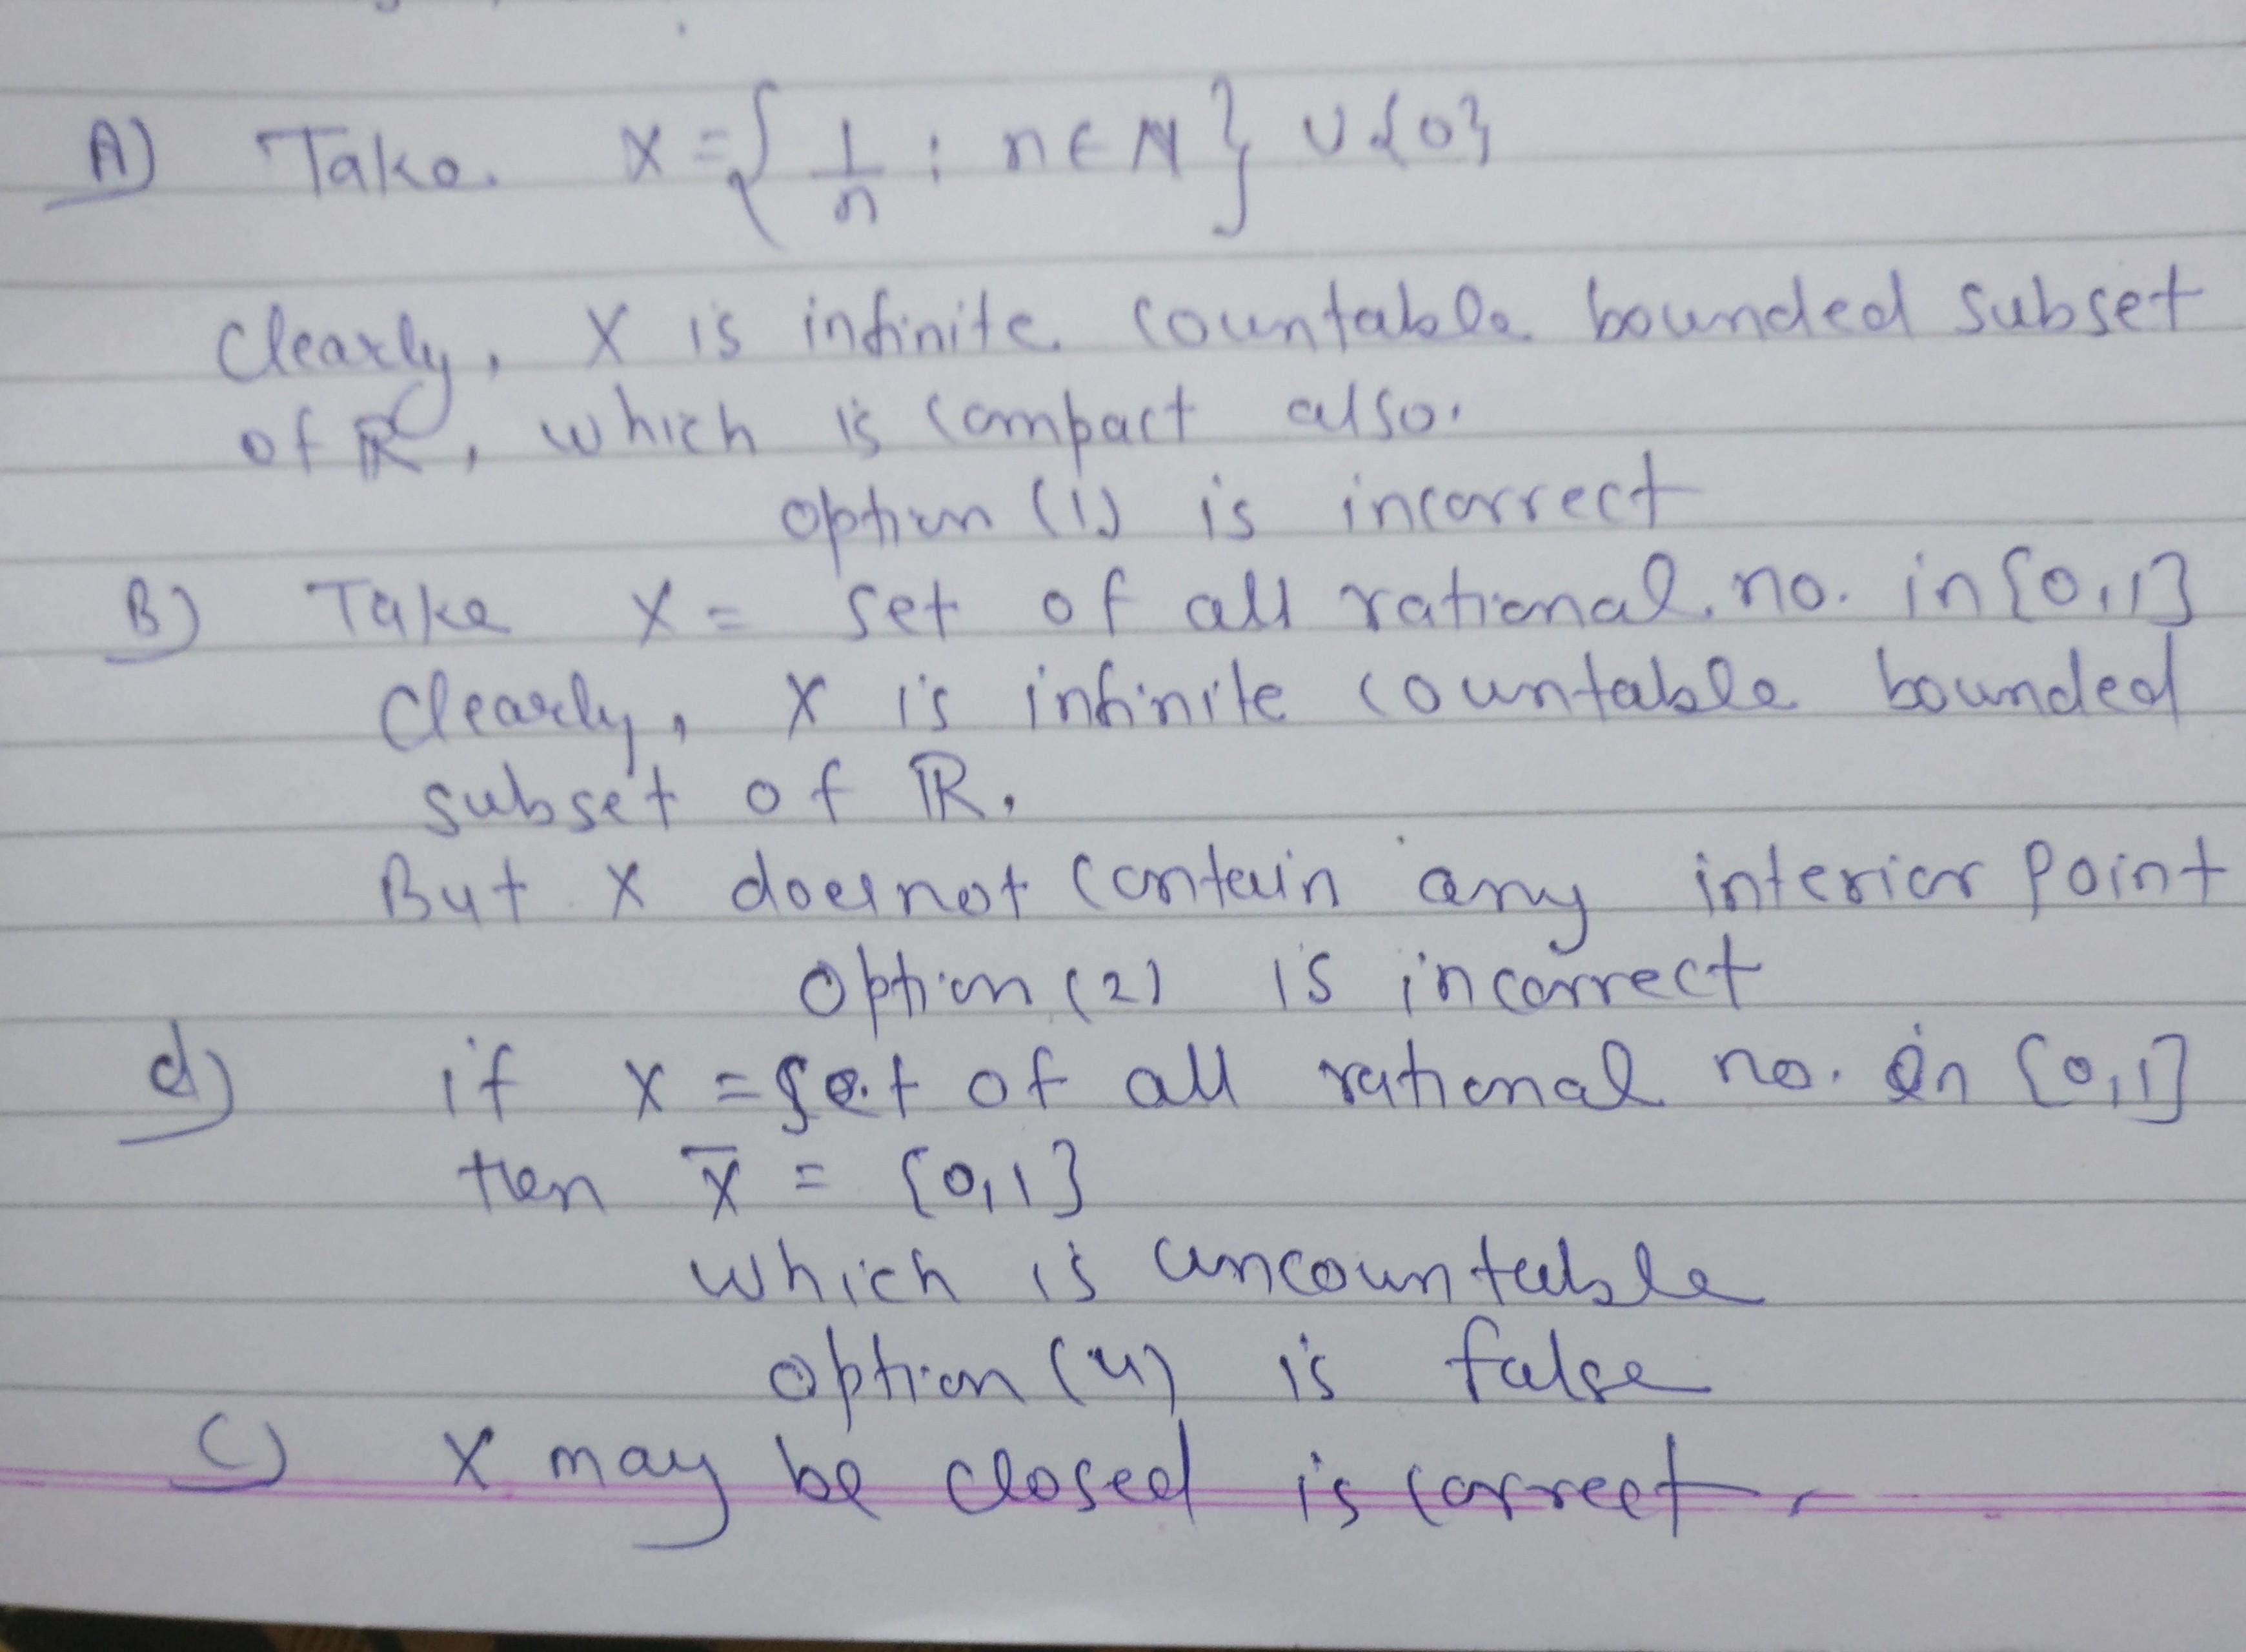 A) Take. X = { 1/n : n ∈ N } ∪ {0}
Clearly, X is infinite countable bounded subset
of R, which is compact also.
option (1) is incorrect
B) Take X = set of all rational no. in [0,1]
Clearly, X is infinite countable bounded
subset of R.
But X doesnot contain any interior point
option (2) is incorrect
d) if X = set of all rational no. in [0,1]
then X̅ = [0,1]
which is uncountable
option (4) is false
C) X may be closed is correct.